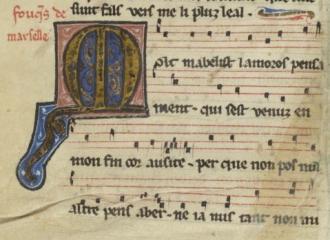 fouq̃s de
marselle
sunt fals vers me li plur leal -
Molt mabelist lamoros pensa
ment - qui sest venuz en
mon fin cor ausire - per que non pos nul
altre pens aber - ne ia nus tant non mi